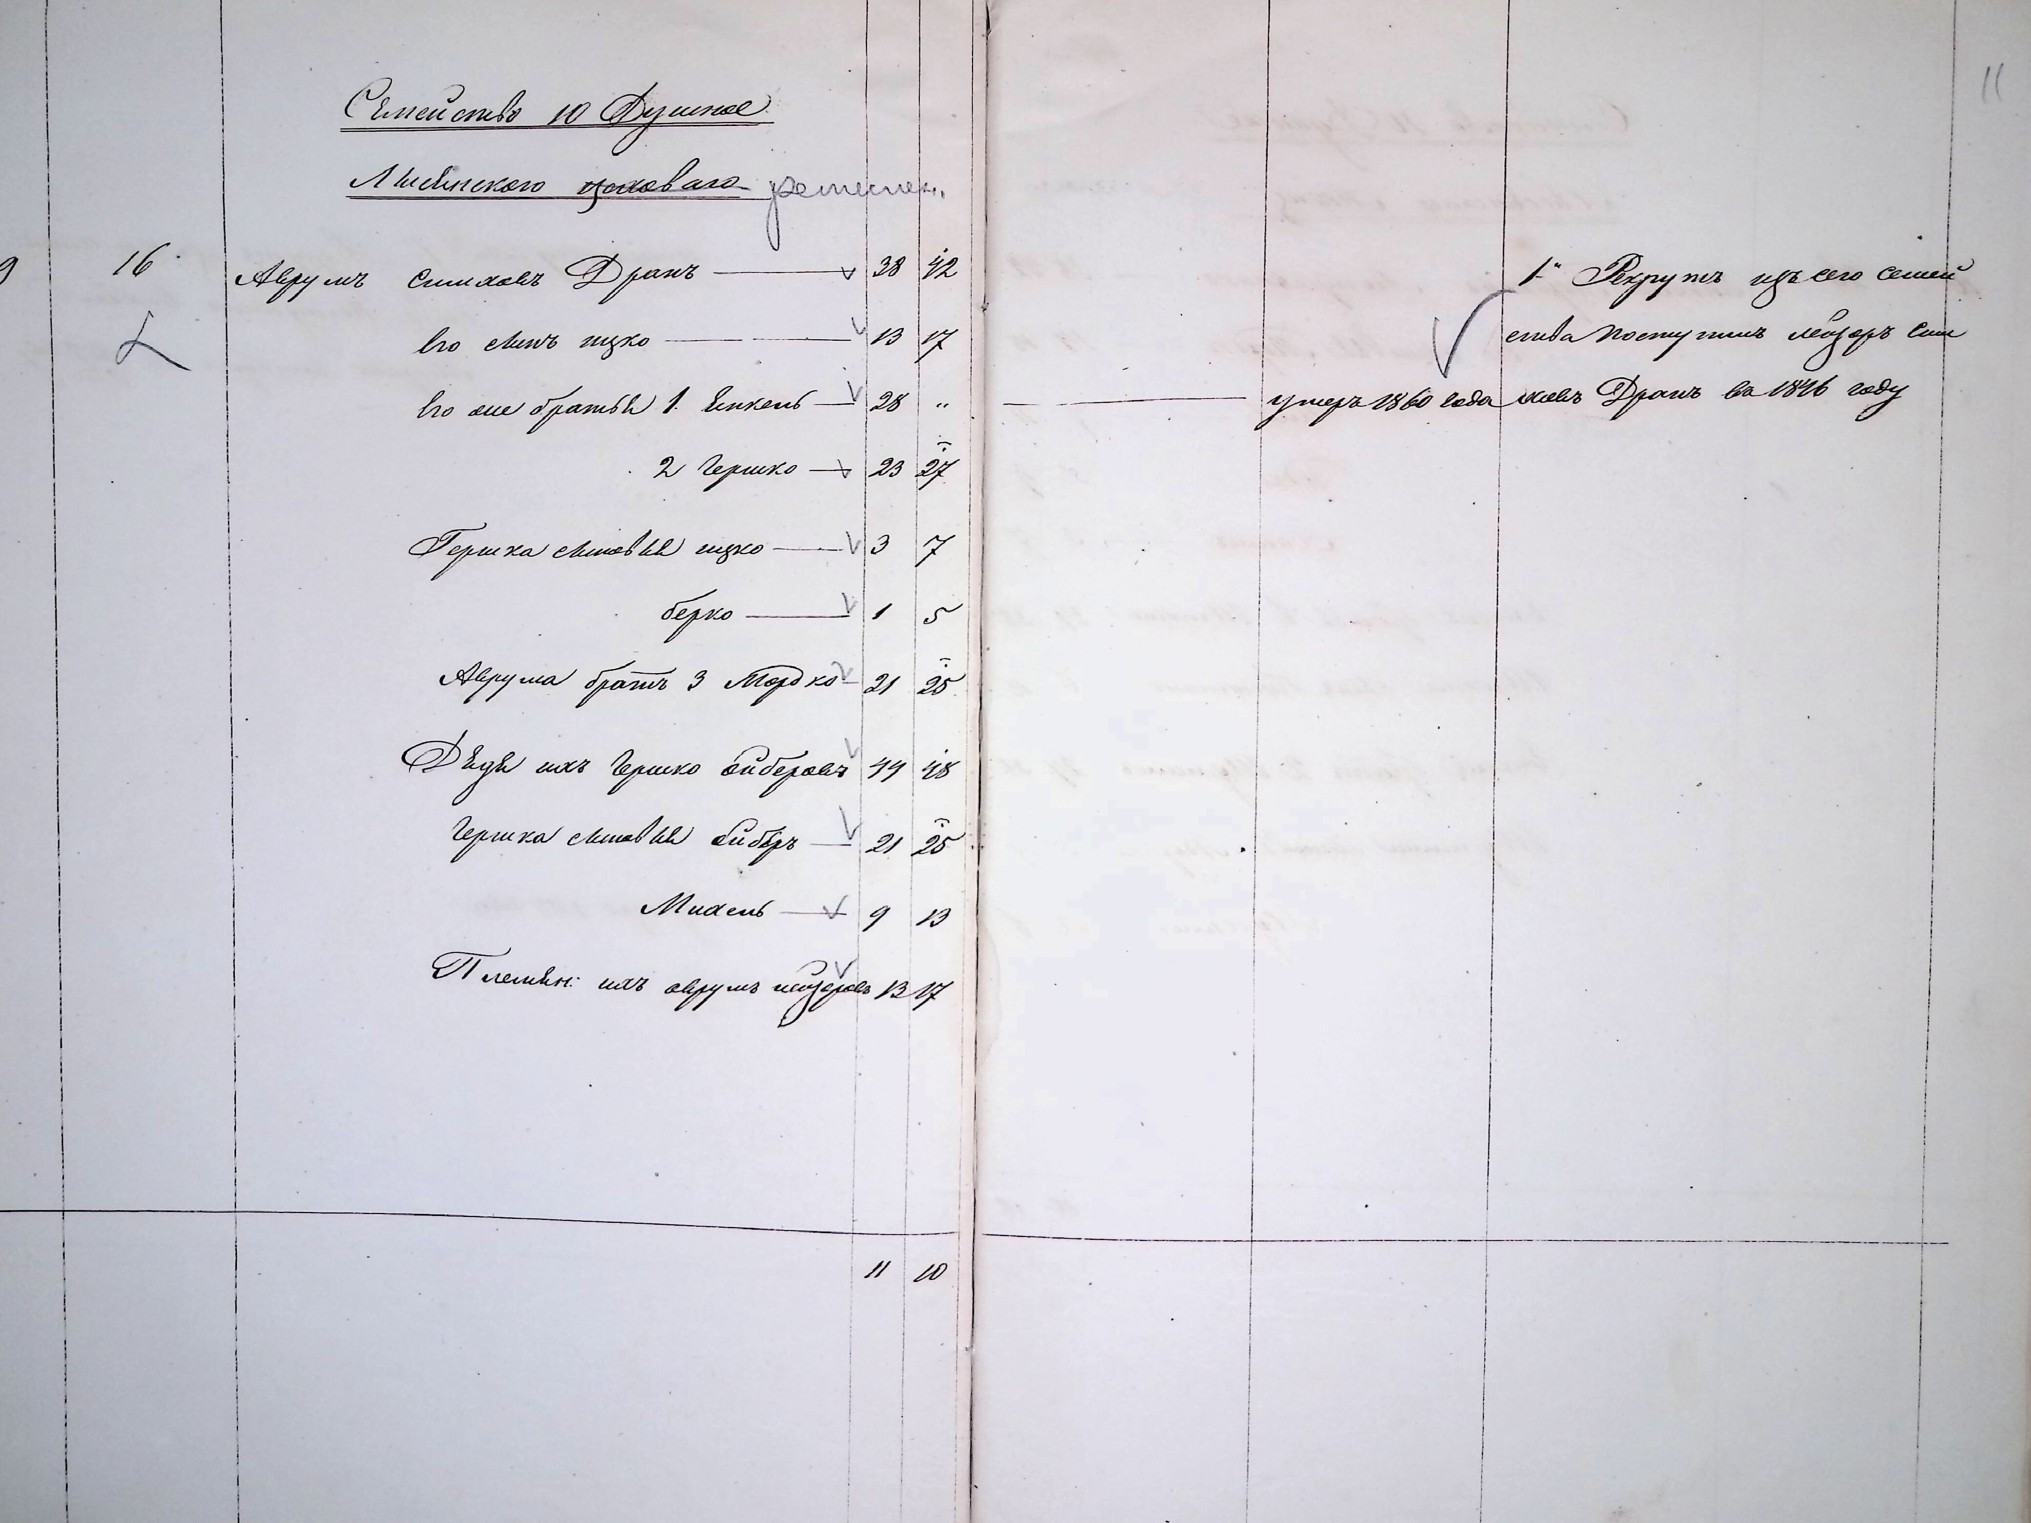 11
Семейство 10 Душное
цеховаго ремеслен.
9 16 Аврумъ Симховъ Дранъ 38 42
Его сынъ ицко 13 17
Его же братья 1. Янкель 28 „ умеръ 1860 года
2 Гершко 23 27
Гершка сыновья ицко 3 7
берко 1 5
Аврума братъ 3 Мордко 21 25
Дядя ихъ Гершко ойберовъ 44 48
Гершка сыновья ойберъ 21 25
Михель 9 13
Племян: ихъ аврумъ лейзеровъ 13 17
11 10
1. Рекрутъ изъ сего семей
ства поступилъ лейзеръ Сим
ховъ Дранъ въ 1846 году